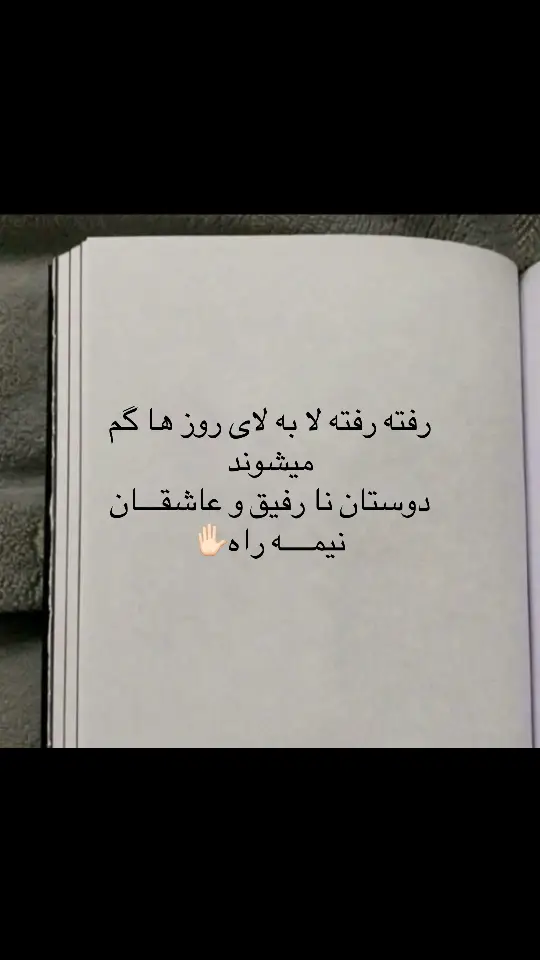 رفته رفته لا به لای روز ها گم
میشوند
دوستان نا رفیق و عاشقـــان
نیمـــه راه🖐🏻